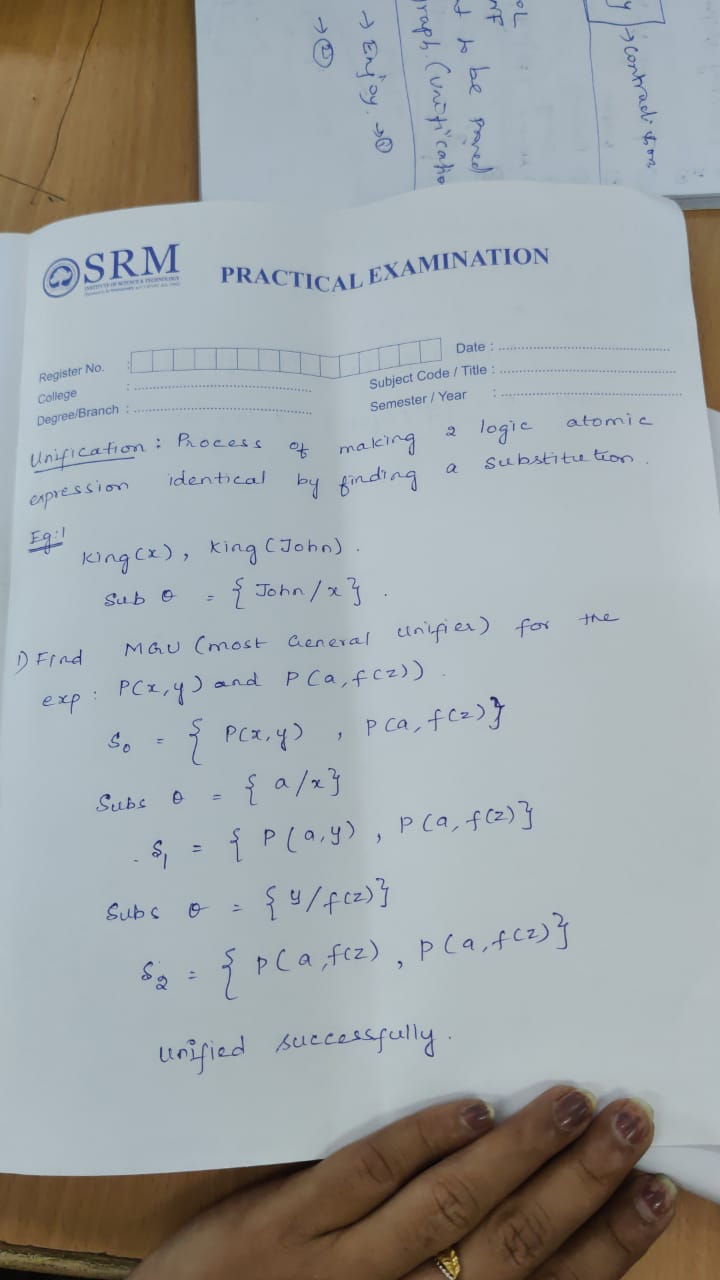 y → contradiction
OL
NF
t to be proved
raph. (unificatio
→ Enjoy. → ①
→ ②
SRM
INSTITUTE OF SCIENCE & TECHNOLOGY
PRACTICAL EXAMINATION
Register No. :
College :
Degree/Branch :
Date :
Subject Code / Title :
Semester / Year :
Unification : Process of making 2 logic atomic
expression identical by finding a substitution.
Eg:1
King(x), King (John).
Sub θ = { John/x }.
1) Find MGU (most General unifier) for the
exp : P(x,y) and P(a, f(z)).
S0 = { P(x,y) , P(a, f(z)}
Subs θ = { a/x}
. S1 = { P(a,y) , P(a, f(z)}
Subs θ = { y/f(z)}
S2 = { P(a,f(z) , P(a,f(z)}
unified successfully.